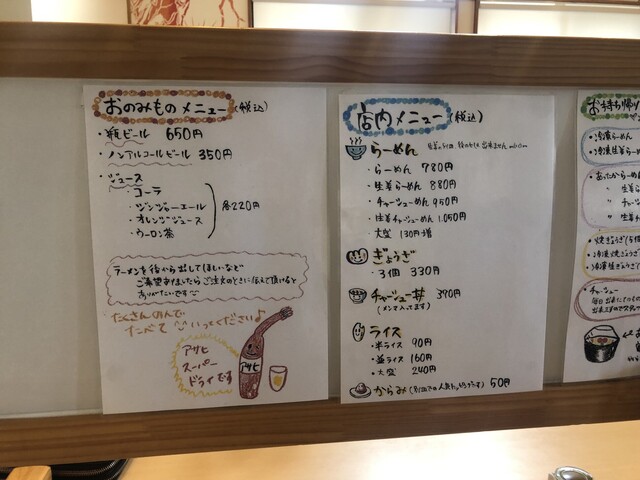 おのみもの メニュー (税込)
・瓶ビール 650円
・ノンアルコールビール 350円
・ジュース
・コーラ
・ジンジャーエール
・オレンジジュース
・ウーロン茶
各220円
ラーメンを後から出してほしいなど
ご希望ありましたらご注文のときに伝えて頂けると
ありがたいです
たくさんのんで
たべて いってください♪
アサヒ
スーパー
ドライです
アサヒ
店内メニュー (税込)
らーめん
・らーめん 780円
・生姜らーめん 880円
・チャーシューめん 950円
・生姜チャーシューめん 1,050円
・大盛 130円増
ぎょうざ
・3個 330円
チャーシュー丼 390円
(メンマ入ってます)
ライス
・半ライス 90円
・並ライス 160円
・大盛 240円
からみ 50円
お持ち帰り
・冷凍らーめん
・冷凍生姜らーめん
・あったからーめん
〃 生姜
〃 チャー
〃 生姜
・チャーシュー